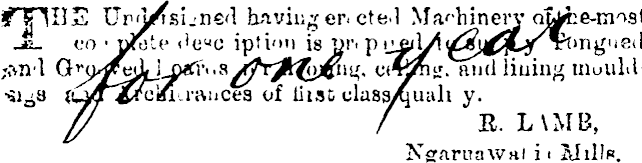 THE Undersigned having erected Machinery of the most
complete description is prepared to supply Tongued
and Grooved Boards for flooring, ceiling, and lining mould-
ings and Architrances of first class quality.
for one year
R. LAMB,
Ngaruawatia Mills.